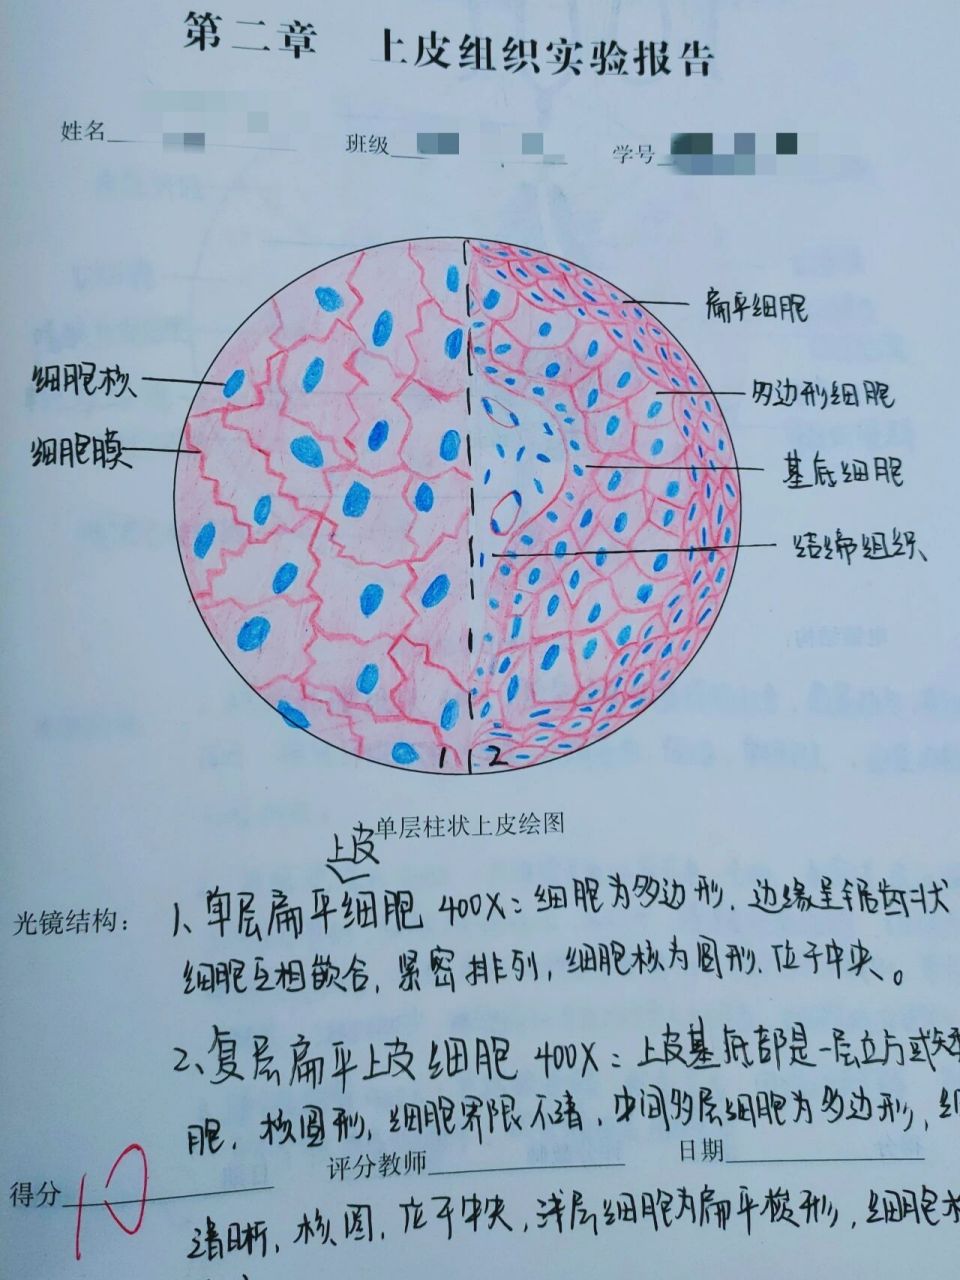 第二章 上皮组织实验报告
姓名 班级 学号
扁平细胞
细胞核
多边形细胞
细胞膜
基底细胞
结缔组织
1 2
单层柱状上皮绘图
上皮
光镜结构：1、单层扁平细胞 400X：细胞为多边形，边缘呈锯齿状
细胞互相嵌合，紧密排列，细胞核为圆形，位于中央。
2、复层扁平上皮细胞 400X：上皮基底部是一层立方或矮
胞，核圆形，细胞界限不清，中间多层细胞为多边形，细
得分 10 评分教师 日期
清晰，核圆，位于中央，浅层细胞为扁平梭形，细胞核